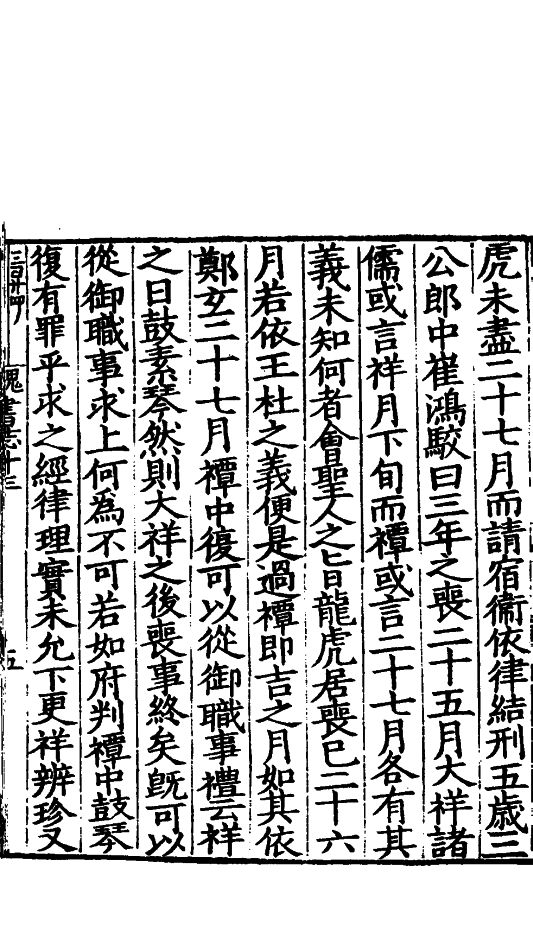 虎未盡二十七月而請宿衞依律結刑五歲三
公郎中崔鴻駮曰三年之喪二十五月大祥諸
儒或言祥月下旬而禫或言二十七月各有其
義未知何者會聖人之旨龍虎居喪已二十六
月若依王杜之義便是過禫即吉之月如其依
鄭玄二十七月禫中復可以從御職事禮云祥
之日鼓素琴然則大祥之後喪事終矣旣可以
從御職事求上何爲不可若如府判禫中鼓琴
復有罪乎求之經律理實未允下更祥辨珍又
魏書志十三
五